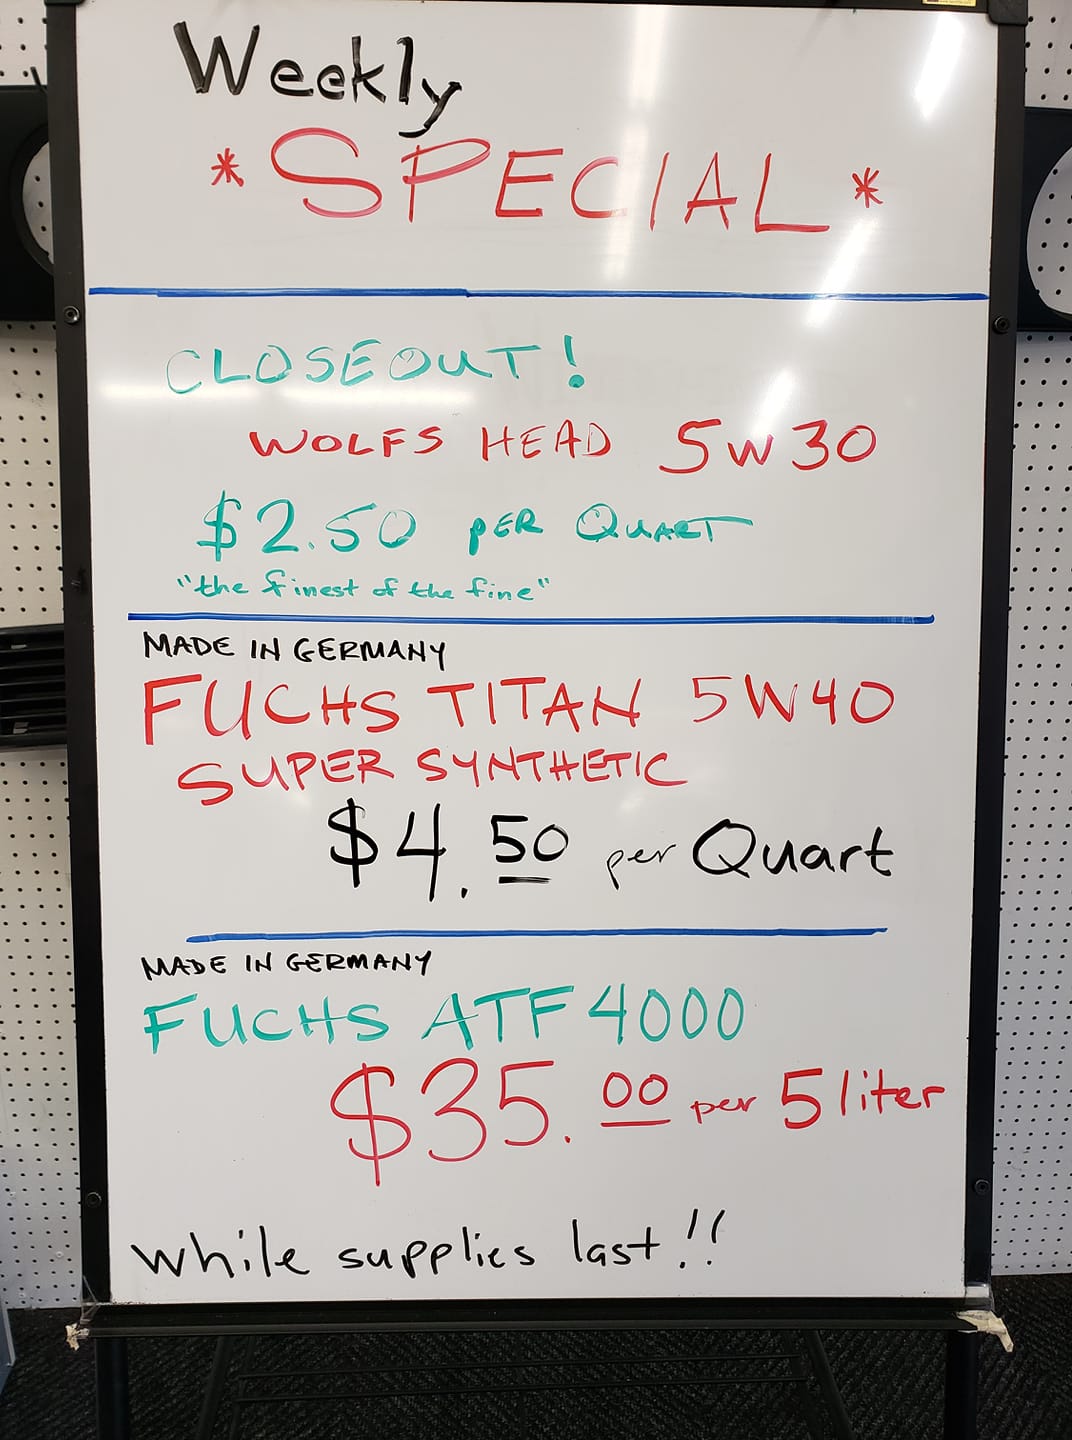 Weekly
* SPECIAL *
CLOSEOUT!
WOLFS HEAD 5W30
$2.50 PER QUART
"the finest of the fine"
MADE IN GERMANY
FUCHS TITAN 5W40
SUPER SYNTHETIC
$4.50 per Quart
MADE IN GERMANY
FUCHS ATF 4000
$35.00 per 5 liter
while supplies last!!